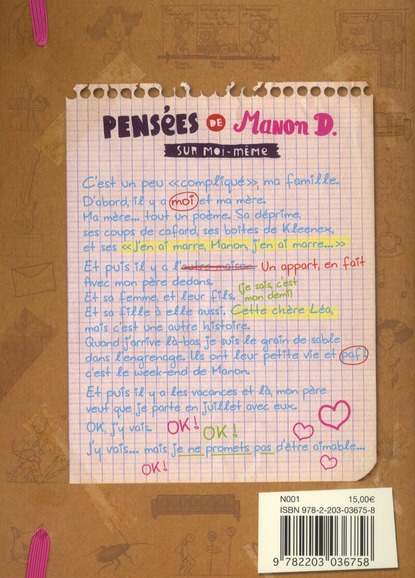 PENSÉES DE MANON D.
SUR MOI-MÊME
C'est un peu «compliqué», ma famille.
D'abord, il y a moi et ma mère.
Ma mère... tout un poème. Sa déprime,
ses coups de cafard, ses boîtes de Kleenex,
et ses «J'en ai marre, Manon, j'en ai marre...»
Et puis il y a l'autre maison. Un appart, en fait
Avec mon père dedans.
(je sais, c'est
mon demi)
Et sa femme, et leur fils.
Et sa fille à elle aussi. Cette chère Léa,
mais c'est une autre histoire.
Quand j'arrive là-bas je suis le grain de sable
dans l'engrenage. Ils ont leur petite vie et paf!
c'est le week-end de Manon.
Et puis il y a les vacances et là, mon père
veut que je parte en juillet avec eux.
OK, j'y vais. OK! OK!
J'y vais... mais je ne promets pas d'être aimable...
OK!
N001 15,00€
ISBN 978-2-203-03675-8
9 782203 036758